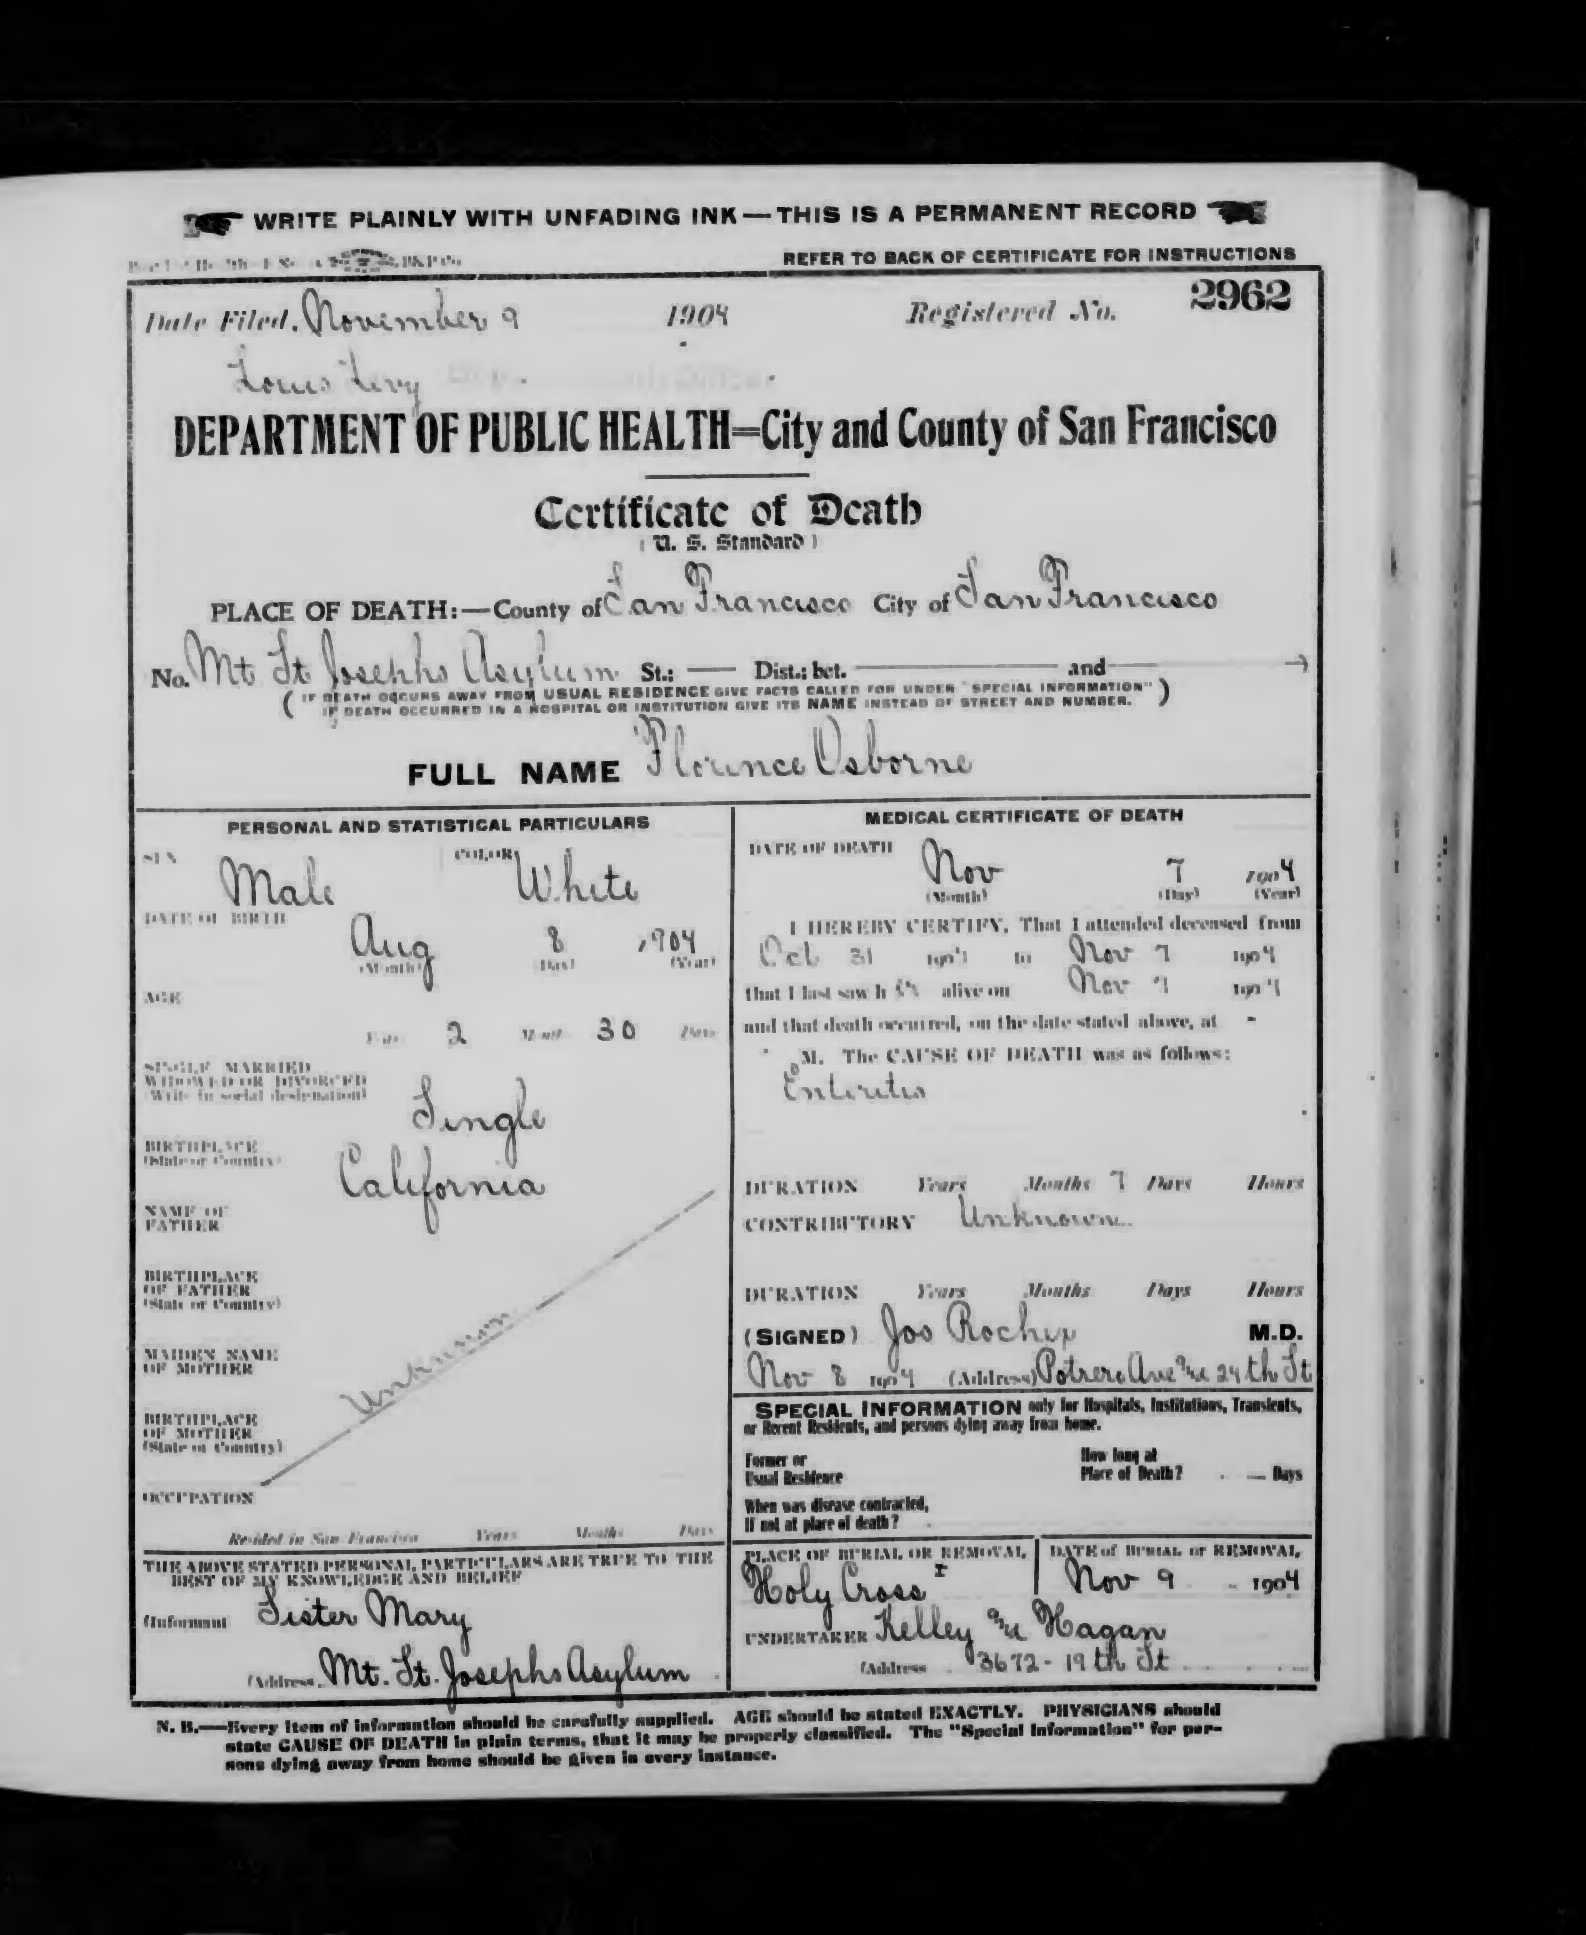 WRITE PLAINLY WITH UNFADING INK—THIS IS A PERMANENT RECORD
REFER TO BACK OF CERTIFICATE FOR INSTRUCTIONS
Date Filed, November 9 1904 Registered No. 2962
Louis Levy
DEPARTMENT OF PUBLIC HEALTH=City and County of San Francisco
Certificate of Death
(U. S. Standard)
PLACE OF DEATH:—County of San Francisco City of San Francisco
No. Mt St Josephs Asylum St.; — Dist.; bet. — and —
( IF DEATH OCCURS AWAY FROM USUAL RESIDENCE GIVE FACTS CALLED FOR UNDER "SPECIAL INFORMATION"
IF DEATH OCCURRED IN A HOSPITAL OR INSTITUTION GIVE ITS NAME INSTEAD OF STREET AND NUMBER. )
FULL NAME Florence Osborne
PERSONAL AND STATISTICAL PARTICULARS
SEX Male COLOR White
DATE OF BIRTH
Aug 8 1904
(Month) (Day) (Year)
AGE
Years 2 Months 30 Days
SINGLE MARRIED
WIDOWED OR DIVORCED
(Write in social designation) Single
BIRTHPLACE
(State or Country) California
NAME OF
FATHER
BIRTHPLACE
OF FATHER
(State or Country)
Unknown
MAIDEN NAME
OF MOTHER
BIRTHPLACE
OF MOTHER
(State or Country)
OCCUPATION
Resided in San Francisco Years Months Days
THE ABOVE STATED PERSONAL PARTICULARS ARE TRUE TO THE
BEST OF MY KNOWLEDGE AND BELIEF
(Informant Sister Mary
(Address Mt. St. Josephs Asylum
MEDICAL CERTIFICATE OF DEATH
DATE OF DEATH
Nov 7 1904
(Month) (Day) (Year)
I HEREBY CERTIFY, That I attended deceased from
Oct 31 1904 to Nov 7 1904
that I last saw h im alive on Nov 7 1904
and that death occurred, on the date stated above, at -
M. The CAUSE OF DEATH was as follows:
Enteritis
DURATION Years Months 7 Days Hours
CONTRIBUTORY Unknown
DURATION Years Months Days Hours
(SIGNED) Jos M.D.
Nov 8 1904 (Address) Potrero Ave & 24th St
SPECIAL INFORMATION only for Hospitals, Institutions, Transients,
or Recent Residents, and persons dying away from home.
Former or
Usual Residence
How long at
Place of Death? — Days
When was disease contracted,
If not at place of death?
PLACE OF BURIAL OR REMOVAL
Holy Cross
DATE of BURIAL or REMOVAL
Nov 9 1904
UNDERTAKER Kelley & Hagan
(Address 3672-19th St
N. B.—Every item of information should be carefully supplied. AGE should be stated EXACTLY. PHYSICIANS should
state CAUSE OF DEATH in plain terms, that it may be properly classified. The "Special Information" for per-
sons dying away from home should be given in every instance.